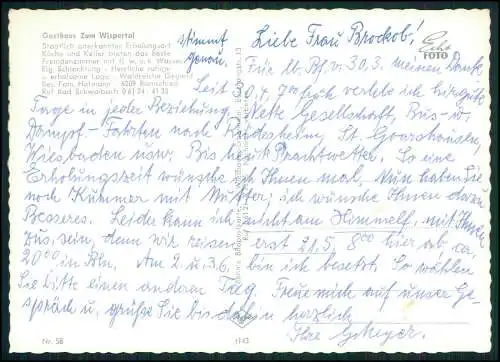 Gasthaus Zum Wispertal
Staatlich anerkannter Erholungsort
Küche und Keller bieten das Beste
Fremdenzimmer mit fl. w. u. k. Wasser
Eig. Schlachtung - Herrliche ruhige
u. erholsame Lage - Waldreiche Gegend
Bes. Fam. Hofmann 6209 Ramschied
Tel. Bad Schwalbach 0 61 24 - 41 33
stimmt
genau.
Liebe Frau Brockob!
Echt
FOTO
Für lb. Bf. v. 30.3. meinen Dank
Seit 04.7 hoch verlebe ich hier gute
Tage in jeder Beziehung. Nette Gesellschaft, Bus- u.
Dampf-Fahrten nach Rüdesheim, St. Goarshausen,
Wiesbaden usw. Bis heute Prachtwetter. So eine
Erholungszeit wünschte ich Ihnen mal. Nun haben Sie
noch Kummer mit Mutter; ich wünsche Ihnen dazu
Besseres. Leider kann ich nicht am mit Ihnen
zus. sein, denn wir reisen erst 21.5. 8°° hier ab ca.
20°° in Bln. Am 2. u. 3.6. bin ich besetzt. So wählen
Sie bitte einen anderen Tag. Freue mich auf unser Ge-
spräch u. grüße Sie bis dahin herzlich
Ihre G. Meyer.
Nr. 58
1F43